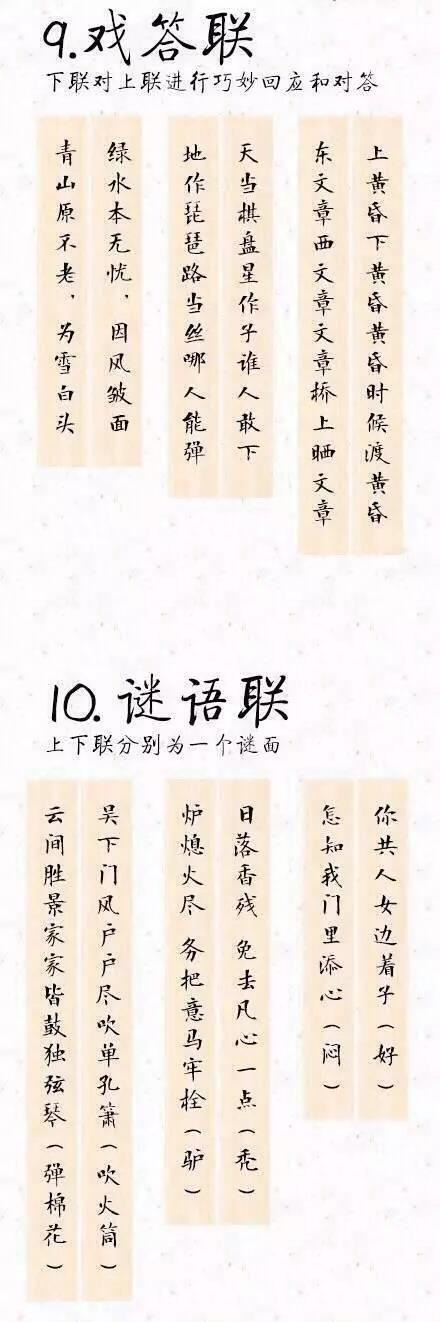 9.戏答联
下联对上联进行巧妙回应和对答
上黄昏下黄昏黄昏时候渡黄昏
东文章西文章文章桥上晒文章
天当棋盘星作子谁人敢下
地作琵琶路当丝哪人能弹
绿水本无忧，因风皱面
青山原不老，为雪白头
10.谜语联
上下联分别为一个谜面
你共人女边着子（好）
怎知我门里添心（闷）
日落香残 免去凡心一点（秃）
炉熄火尽 务把意马牢栓（驴）
吴下门风户户尽吹单孔箫（吹火筒）
云间胜景家家皆鼓独弦琴（弹棉花）